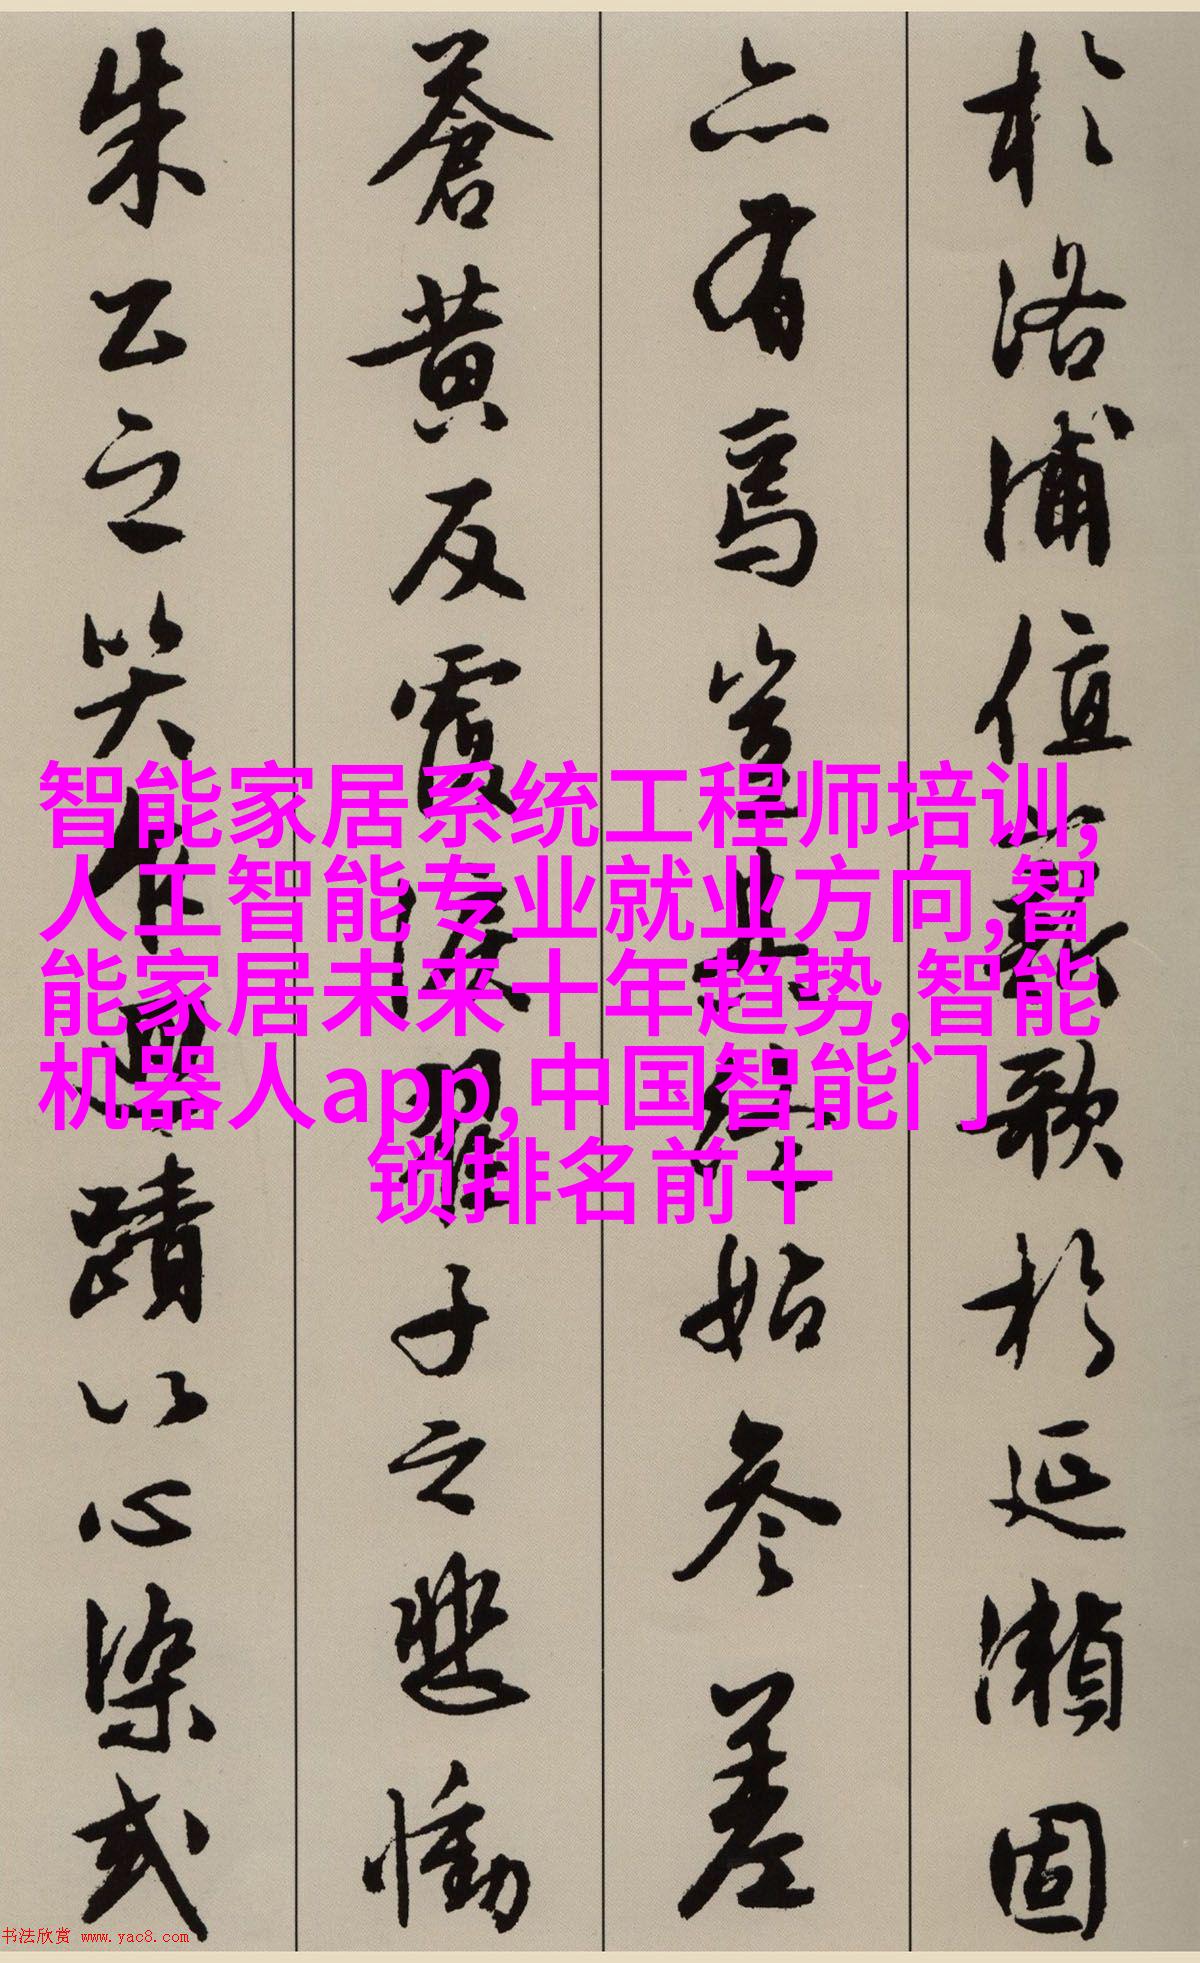 於洛浦值薪歌於延瀨固
亦有焉豈其終始參差
蒼黃反覆淚翟子之悲慟
朱公之哭乍迴蹟以心染或
智能家居系统工程师培训,
人工智能专业就业方向,智
能家居未来十年趋势,智能
机器人app,中国智能门
锁排名前十
书法欣赏 www.yac8.com